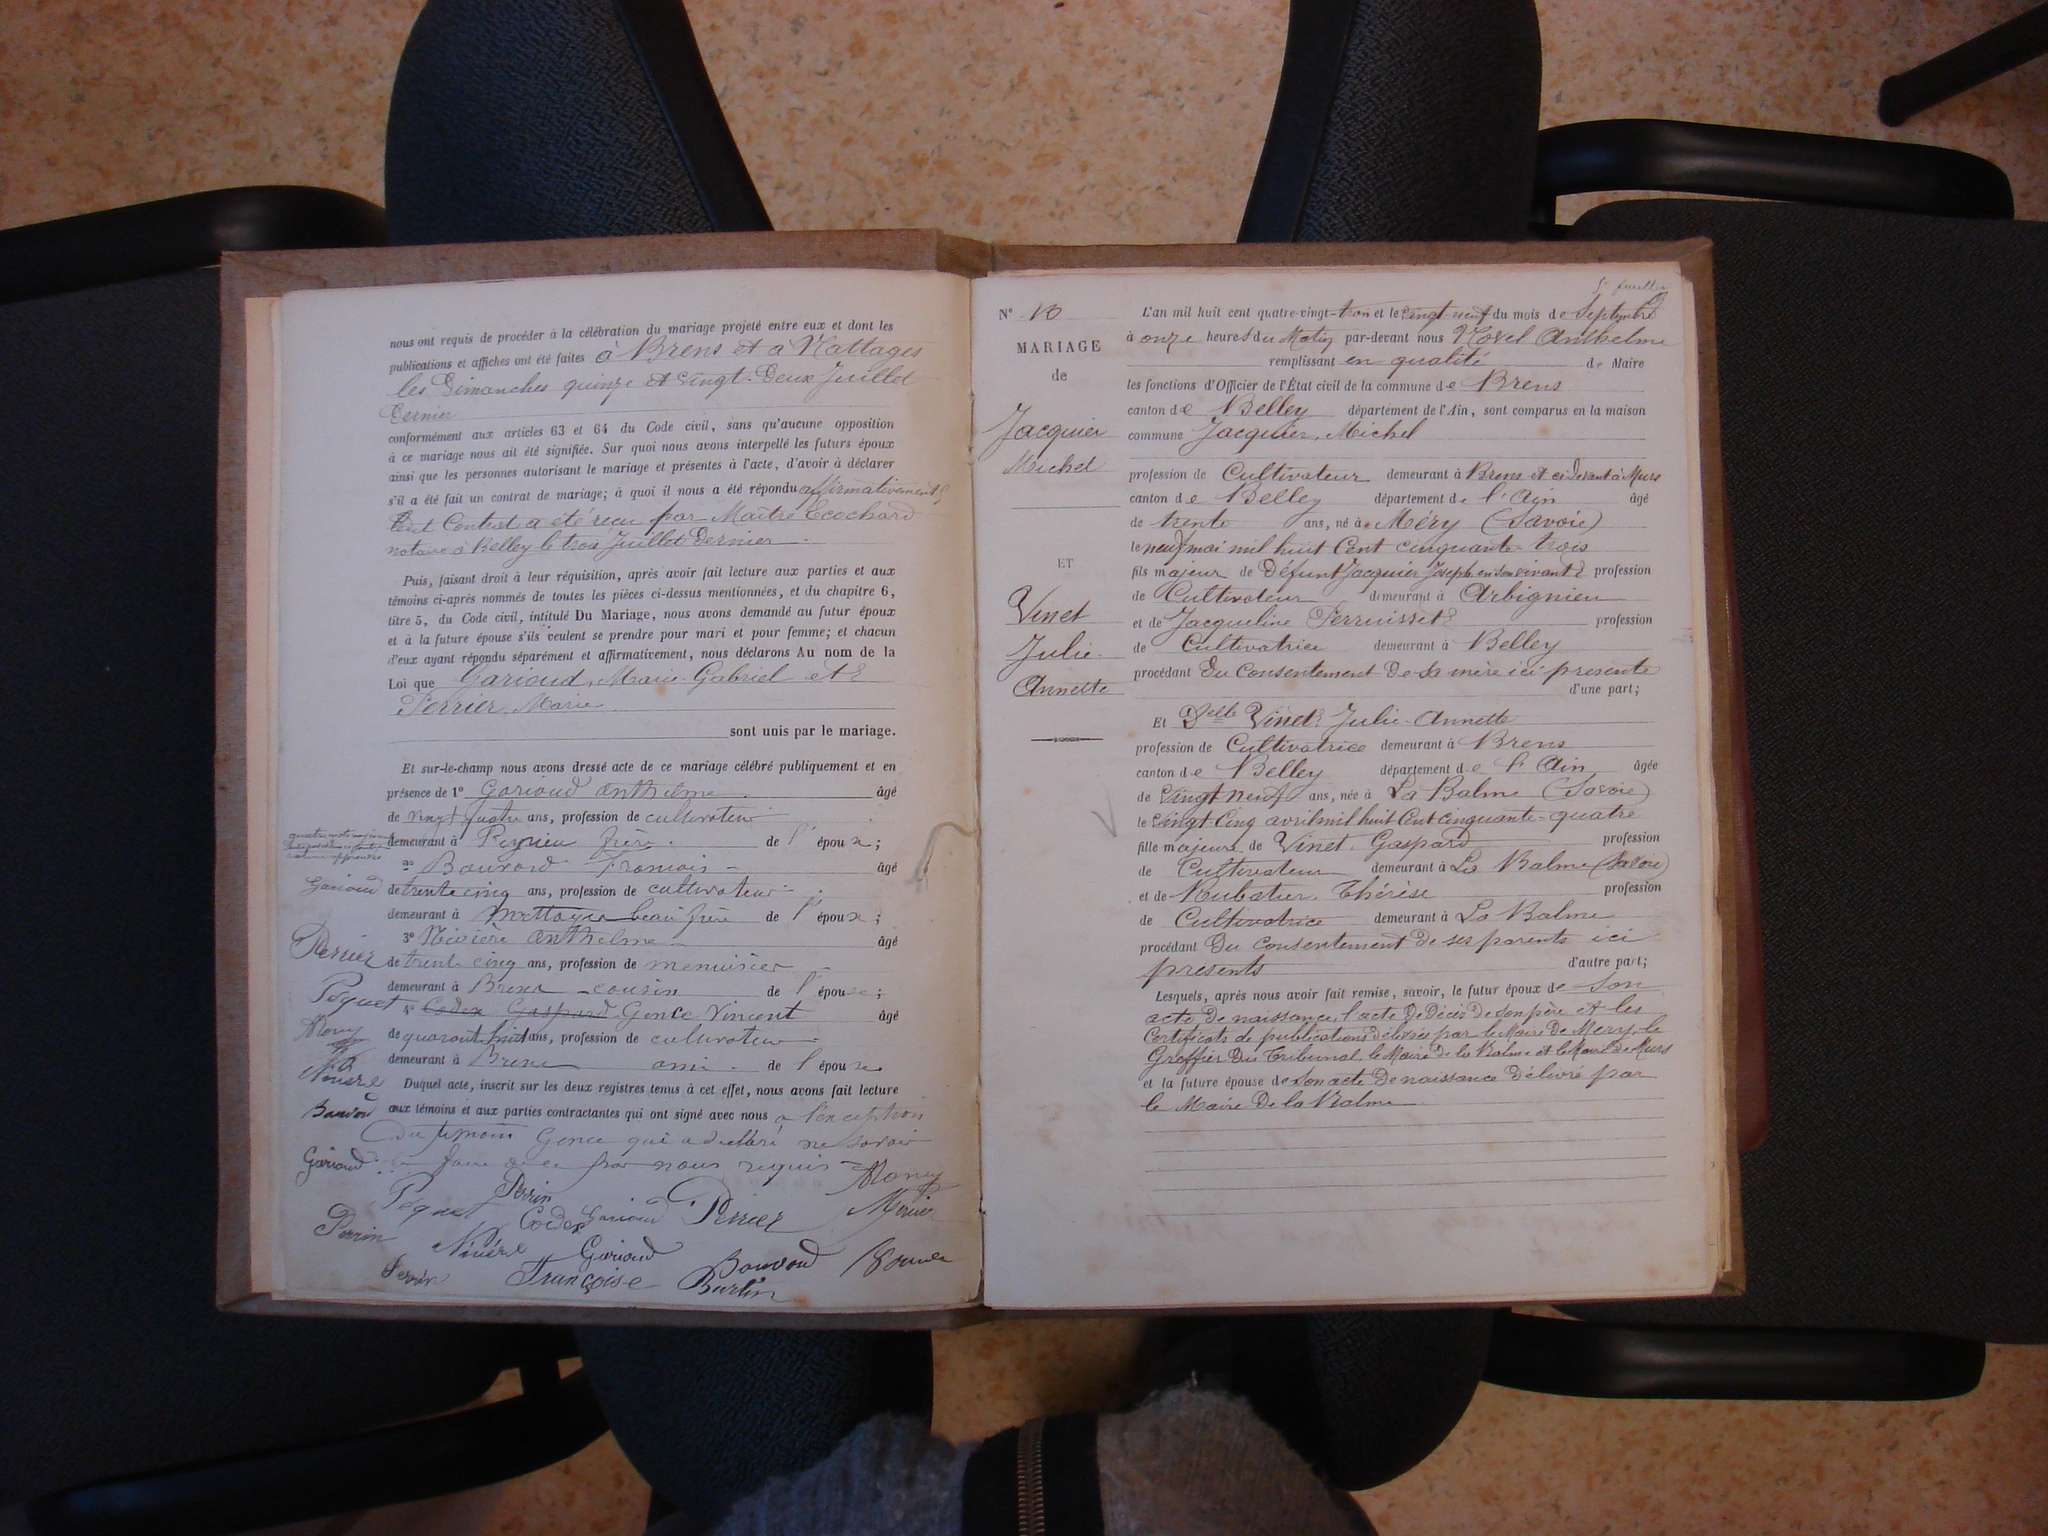 nous ont requis de procéder à la célébration du mariage projeté entre eux et dont les
publications et affiches ont été faites à Brens et à Nattages
les Dimanches quinze et vingt-deux Juillet
dernier
conformément aux articles 63 et 64 du Code civil, sans qu'aucune opposition
à ce mariage nous ait été signifiée. Sur quoi nous avons interpellé les futurs époux
ainsi que les personnes autorisant le mariage et présentes à l'acte, d'avoir à déclarer
s'il a été fait un contrat de mariage; à quoi il nous a été répondu affirmativement
a été reçu par Maître Ecochard
notaire à Belley le trois Juillet dernier
Puis, faisant droit à leur réquisition, après avoir fait lecture aux parties et aux
témoins ci-après nommés de toutes les pièces ci-dessus mentionnées, et du chapitre 6,
titre 5, du Code civil, intitulé Du Mariage, nous avons demandé au futur époux
et à la future épouse s'ils veulent se prendre pour mari et pour femme; et chacun
d'eux ayant répondu séparément et affirmativement, nous déclarons Au nom de la
Loi que Garioud, Marie Gabriel et
Perrier Marie
sont unis par le mariage.
Et sur-le-champ nous avons dressé acte de ce mariage célébré publiquement et en
présence de 1° Garioud Anthelme âgé
de vingt quatre ans, profession de cultivateur
demeurant à Peyrieu frère de l'époux;
2° Bouvard François âgé
Garioud de trente cinq ans, profession de cultivateur
demeurant à beau frère de l'époux;
3° Anthelme âgé
Perrier de trente cinq ans, profession de menuisier
demeurant à Brens cousin de l'épouse;
Péquet 4° Codex Gaspard Gence Vincent âgé
de quarante huit ans, profession de cultivateur
demeurant à Brens ami de l'épouse
Duquel acte, inscrit sur les deux registres tenus à cet effet, nous avons fait lecture
aux témoins et aux parties contractantes qui ont signé avec nous à l'exception
du témoin Gence qui a déclaré ne savoir
Garioud faire de ce par nous requis
Péquet Perrin
Perrin Codex Garioud Perrier
Garioud Bouvard
Perrin Françoise Burtin
5e feuillet
N° 10
MARIAGE
de
Jacquier
Michel
ET
Vinet
Julie
Annette
L'an mil huit cent quatre-vingt-trois et le vingt-neuf du mois de Septembre
à onze heures du Matin par-devant nous Anthelme
remplissant en qualité de Maire
les fonctions d'Officier de l'État civil de la commune de Brens
canton de Belley département de l'Ain, sont comparus en la maison
commune Jacquier, Michel
profession de Cultivateur demeurant à Brens et ci devant à Murs
canton de Belley département de l'Ain âgé
de trente ans, né à Méry (Savoie)
le neuf mai mil huit Cent cinquante-trois
fils majeur de Défunt Jacquier Joseph en son vivant profession
de Cultivateur demeurant à Arbignieu
et de Jacqueline Perruisset profession
de Cultivatrice demeurant à Belley
procédant Du Consentement De sa mère ici présente
d'une part;
Et Delle Vinet Julie-Annette
profession de Cultivatrice demeurant à Brens
canton de Belley département de l'Ain âgée
de vingt neuf ans, née à La Balme (Savoie)
le vingt cinq avril mil huit Cent cinquante-quatre
fille majeure de Vinet Gaspard profession
de Cultivateur demeurant à La Balme (Savoie)
et de Rubatier Thérèse profession
de Cultivatrice demeurant à La Balme
procédant Du Consentement De ses parents ici
présents d'autre part;
Lesquels, après nous avoir fait remise, savoir, le futur époux de son
acte De naissance, l'acte De Décès De son père et les
Certificats de publications délivrés par le Maire De Mery, le
Greffier Du Tribunal, le Maire De la Balme et le Maire De Murs
et la future épouse de son acte De naissance Délivré par
le Maire De la Balme